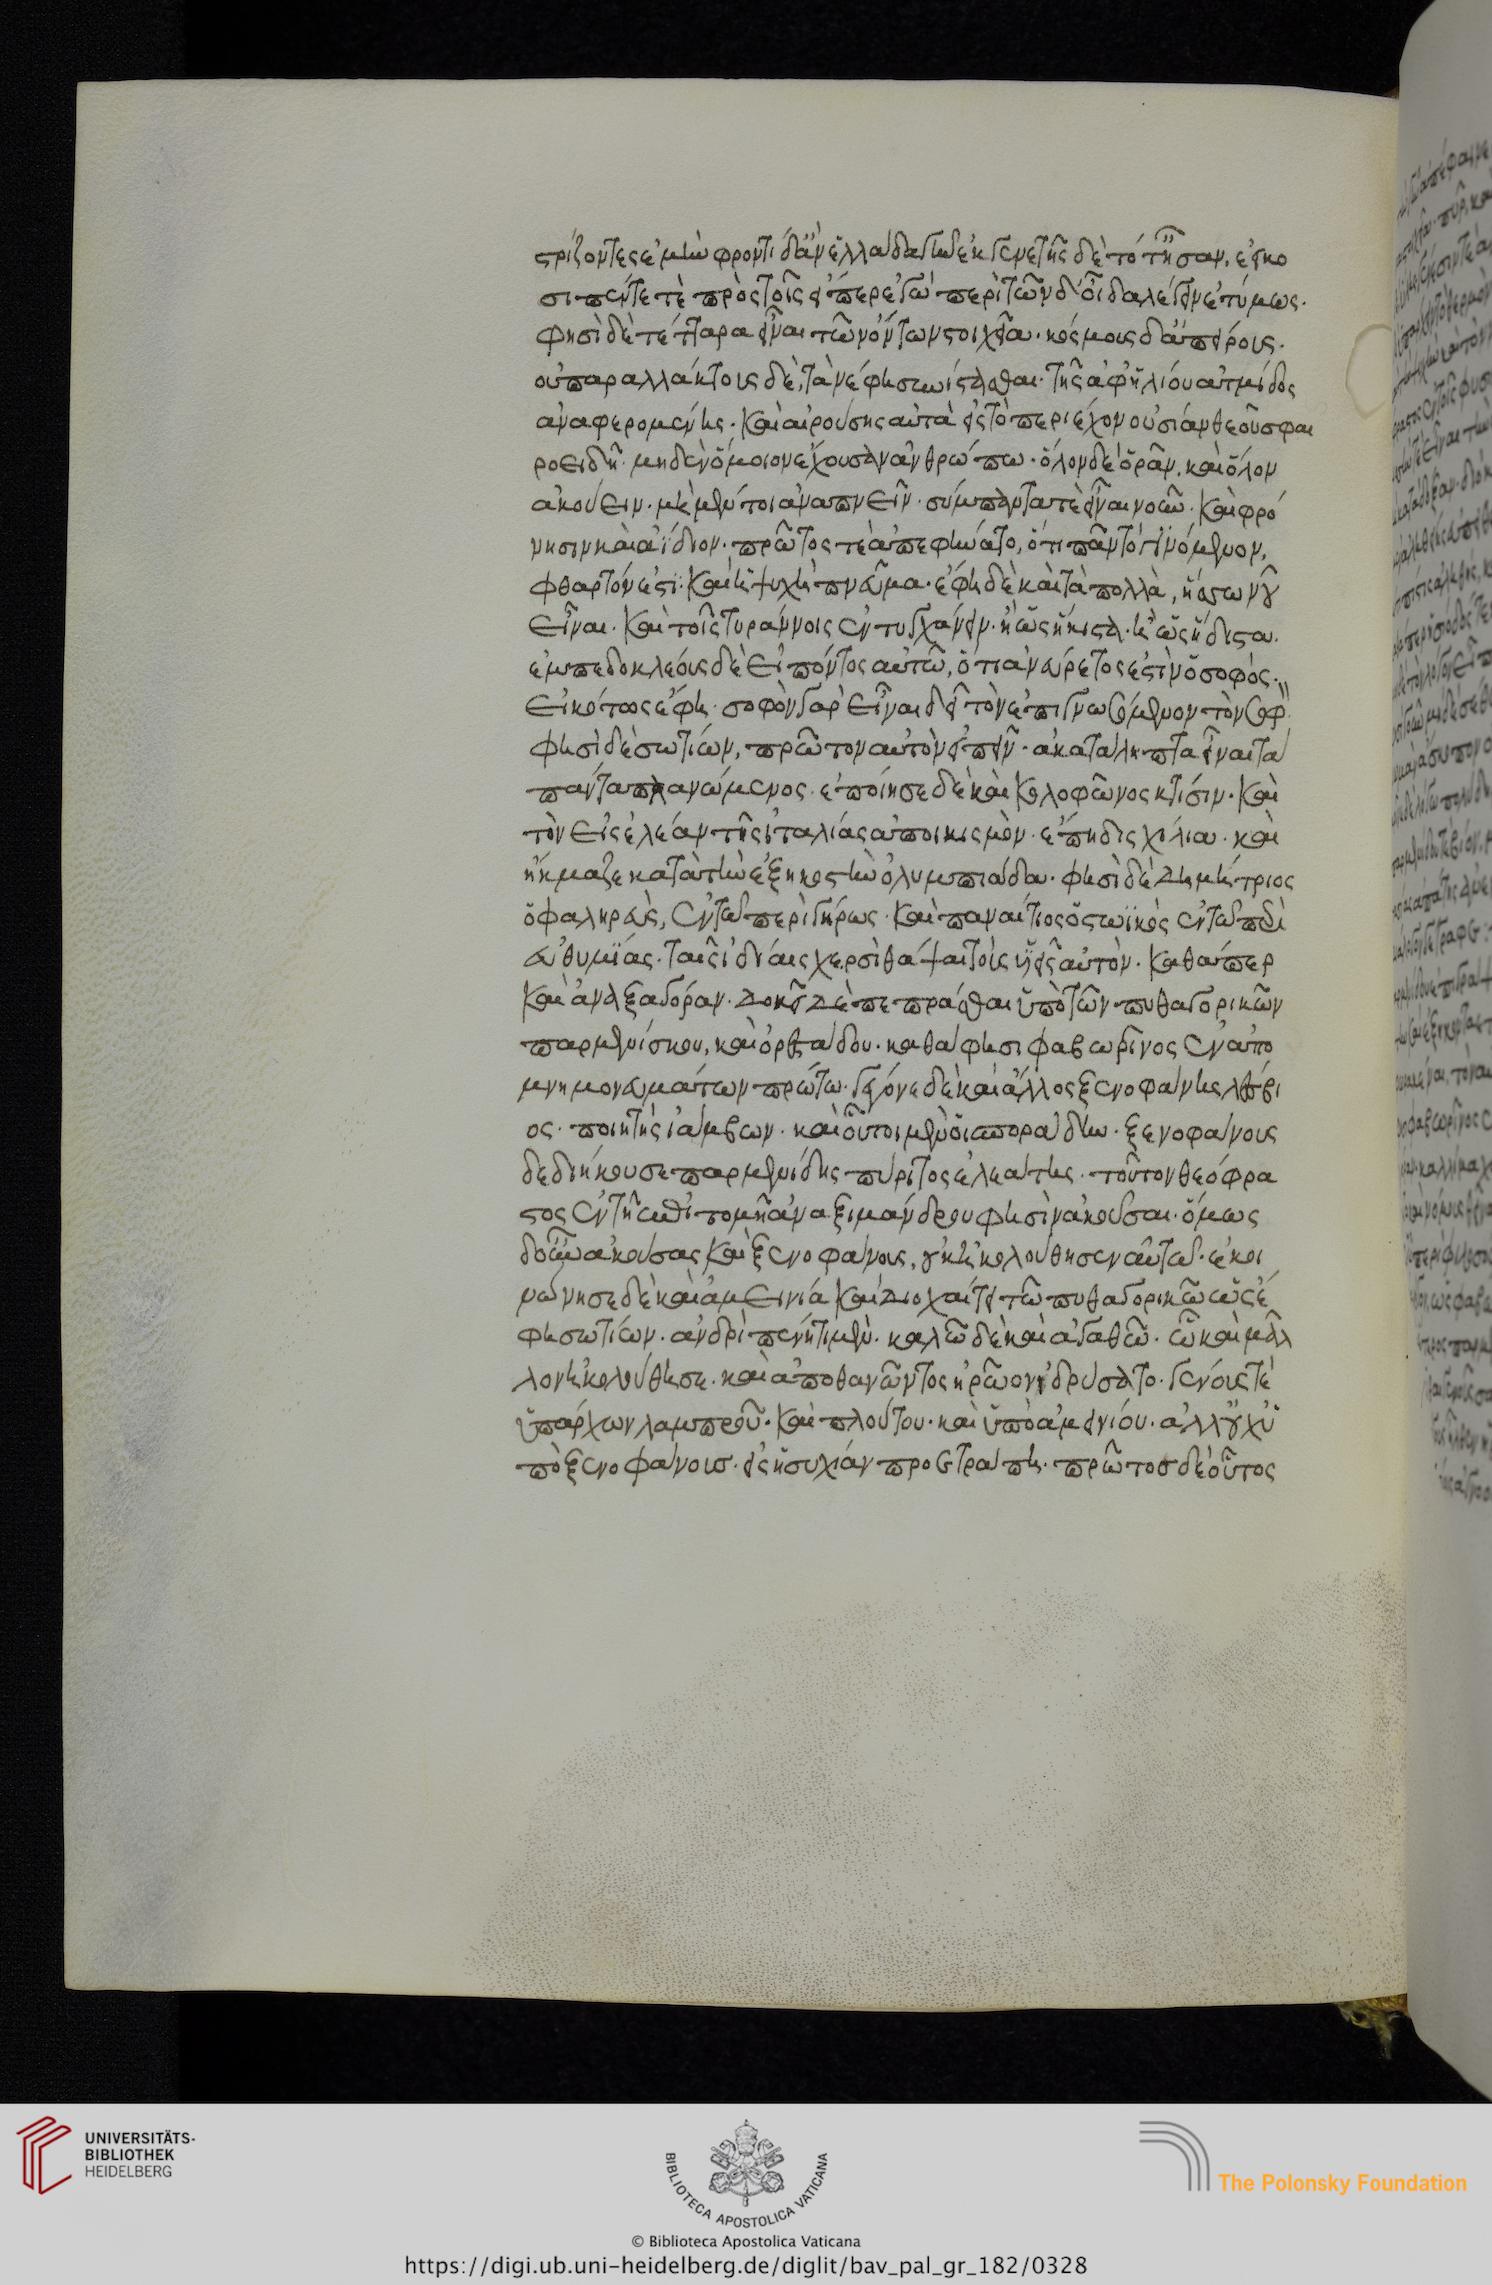 στρίζοντες ἐμὴν φροντίδα ἀν ἑλλάδα γῆν ἐκ γενετῆς δὲ τότ' ἦσαν. ἐείκο
σι πέντε τὲ πρὸς τοῖς εἴπερ ἐγὼ περὶ τῶνδ' οἶδα λέγειν ἐτύμως.
Φησὶ δὲ τέτταρα εἶναι τῶν ὄντων στοιχεῖα. κόσμους δ' ἀπείρους.
οὐ παραλλάκτους δὲ, τὰ νέφη συνίστασθαι. τῆς ἀφ' ἡλίου ἀτμίδος
ἀναφερομένης. Καὶ αἰρούσης αὐτὰ εἰς τὸ περιέχον οὐσίαν θεοῦ σφαι
ροειδῆ. μηδὲν ὅμοιον ἔχουσαν ἀνθρώπω. ὅλον δὲ ὁρᾶν. καὶ ὅλον
ἀκούειν. μὴ μέντοι ἀναπνεῖν. σύμπαντα τὲ εἶναι νοῦν. Καὶ φρό
νησιν καὶ ἀΐδιον. πρῶτος τὲ ἀπεφήνατο, ὅτι πᾶν τὸ γινόμενον,
φθαρτόν ἐστι. Καὶ ἡ ψυχὴ πνεῦμα. ἔφη δὲ καὶ τὰ πολλὰ, ἥσσω νοῦ
εἶναι. Καὶ τοῖς τυράννοις ἐντυγχάνειν. ἢ ὡς ἥκιστα. ἢ ὡς ἥδιστα.
ἐμπεδοκλέους δὲ εἰπόντος αὐτῶ, ὅτι ἀνεύρετος ἐστὶν ὁ σοφὸς.
Εἰκότως ἔφη. σοφὸν γὰρ εἶναι δεῖ τὸν ἐπιγνωσόμενον τὸν σοφ
φησὶ δὲ σωτίων, πρῶτον αὐτὸν εἰπεῖν. ἀκατάληπτα εἶναι τὰ
πάντα πλανώμενος. ἐποίησε δὲ καὶ Κολοφῶνος κτίσιν. Καὶ
τὸν εἰς ἐλέαν τῆς ἰταλίας ἀποικισμὸν. ἔπη δισχίλια. καὶ
ἤκμαζε κατὰ τὴν ἑξηκοστὴν ὀλυμπιάδα. φησὶ δὲ Δημήτριος
ὁ φαληρεὺς, ἐν τῶ περὶ γήρως. Καὶ παναίτιος ὁ στωϊκὸς ἐν τῶ περὶ
εὐθυμίας. ταῖς ἰδίαις χερσὶ θάψαι τοὺς υἱεῖς αὐτὸν. Καθάπερ
Καὶ ἀναξαγόραν. Δοκεῖ Δὲ πεπράσθαι ὑπὸ τῶν πυθαγορικῶν
παρμενίσκου, καὶ ὀρεστάδου. καθά φησι φαβωρῖνος ἐν ἀπο
μνημονευμάτων πρώτω. γέγονε δὲ καὶ ἄλλος ξενοφάνης λέσβι
ος. ποιητὴς ἰάμβων. καὶ οὗτοι μὲν οἱ σποράδην. ξενοφάνους
δὲ διήκουσε παρμενίδης πύρητος ἐλεάτης. τοῦτον θεόφρα
στος ἐν τῆ ἐπιτομῆ ἀναξιμάνδρου φησὶν ἀκοῦσαι. ὅμως
δ' οὖν ἀκούσας Καὶ ξενοφάνους, οὐκ ἠκολούθησεν αὐτῶ. ἐκοι
νώνησε δὲ καὶ ἀμεινία Καὶ Διοχαίτει τῶ πυθαγορικῶ ὡς ἔ
φη σωτίων. ἀνδρὶ πένητι μὲν. καλῶ δὲ καὶ ἀγαθῶ. ὧ καὶ μᾶλ
λον ἠκολούθησε. καὶ ἀποθανῶντος ἡρῶον ἱδρύσατο. γένους τὲ
ὑπάρχων λαμπροῦ. Καὶ πλούτου. καὶ ὑπὸ ἀμεινίου. ἀλλ' οὐχ ὑ
πὸ ξενοφάνους. εἰς ἡσυχίαν προετράπη. πρῶτος δὲ οὗτος
UNIVERSITÄTS-
BIBLIOTHEK
HEIDELBERG
BIBLIOTECA APOSTOLICA VATICANA
© Biblioteca Apostolica Vaticana
The Polonsky Foundation
https://digi.ub.uni-heidelberg.de/diglit/bav_pal_gr_182/0328